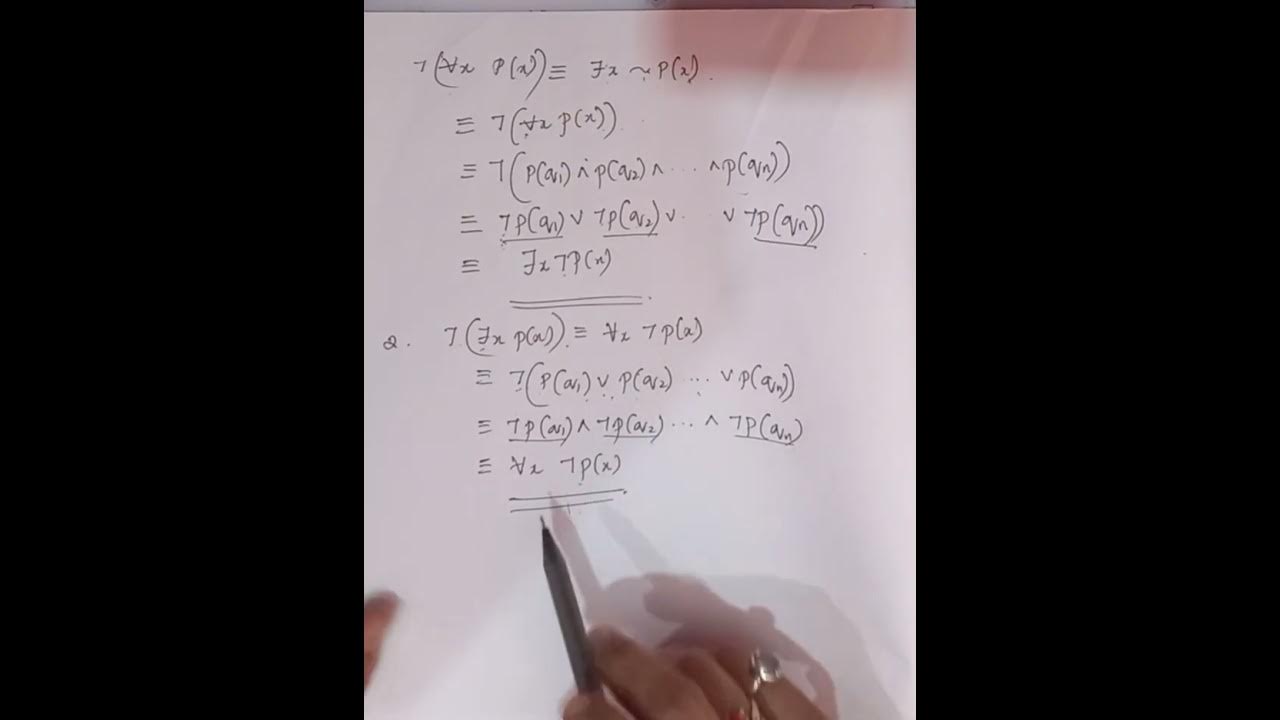 ¬(∀x P(x)) ≡ ∃x ~P(x).
≡ ¬(∀x P(x)).
≡ ¬(P(a₁) ∧ P(a₂) ∧ ... ∧ P(aₙ))
≡ ¬P(a₁) ∨ ¬P(a₂) ∨ .. ∨ ¬P(aₙ))
≡ ∃x ¬P(x)
2. ¬(∃x P(x)) ≡ ∀x ¬P(x)
≡ ¬(P(a₁) ∨ P(a₂) ... ∨ P(aₙ))
≡ ¬P(a₁) ∧ ¬P(a₂) ... ∧ ¬P(aₙ)
≡ ∀x ¬P(x)